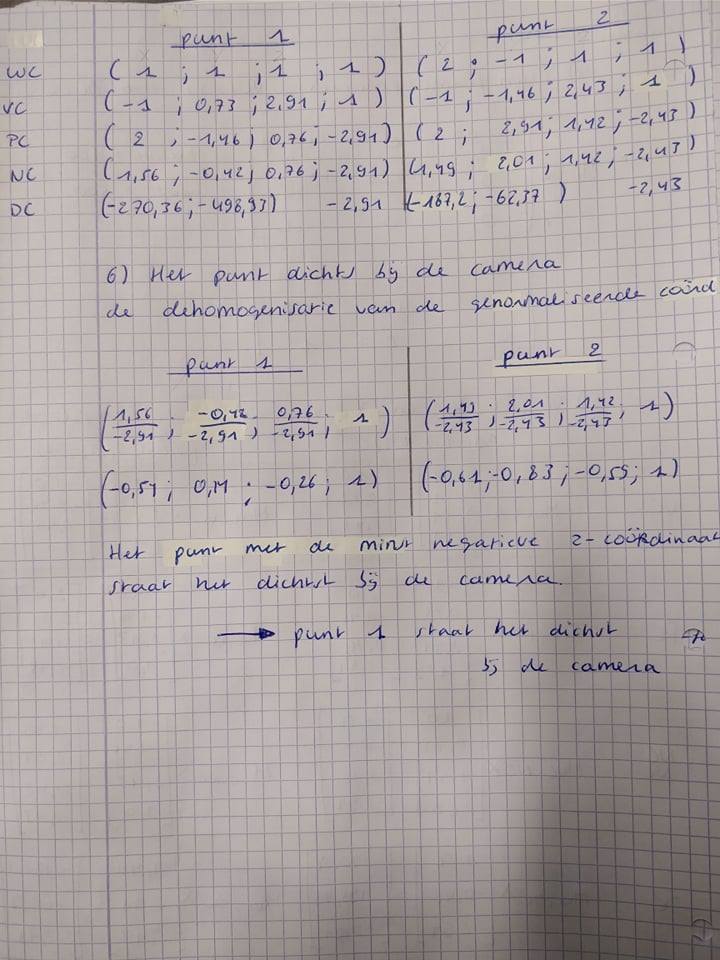 punt 1 punt 2
WC (1 ; 1 ; 1 ; 1) (2 ; -1 ; 1 ; 1)
VC (-1 ; 0,73 ; 2,91 ; 1) (-1 ; -1,46 ; 2,43 ; 1)
PC (2 ; -1,46 ; 0,76 ; -2,91) (2 ; 2,91 ; 1,42 ; -2,43)
NC (1,56 ; -0,42 ; 0,76 ; -2,91) (1,49 ; 2,01 ; 1,42 ; -2,43)
DC (-270,36 ; -498,93) -2,91 (-167,2 ; -62,37) -2,43
6) Het punt dichts bij de camera
de dehomogenisatie van de genormaliseerde coörd
punt 1 punt 2
(1,56/-2,91 ; -0,42/-2,91 ; 0,76/-2,91 ; 1) (1,49/-2,43 ; 2,01/-2,43 ; 1,42/-2,43 ; 1)
(-0,54 ; 0,14 ; -0,26 ; 1) (-0,61 ; -0,83 ; -0,59 ; 1)
Het punt met de minst negatieve z-coördinaat
staat het dichtst bij de camera.
→ punt 1 staat het dichst
bij de camera